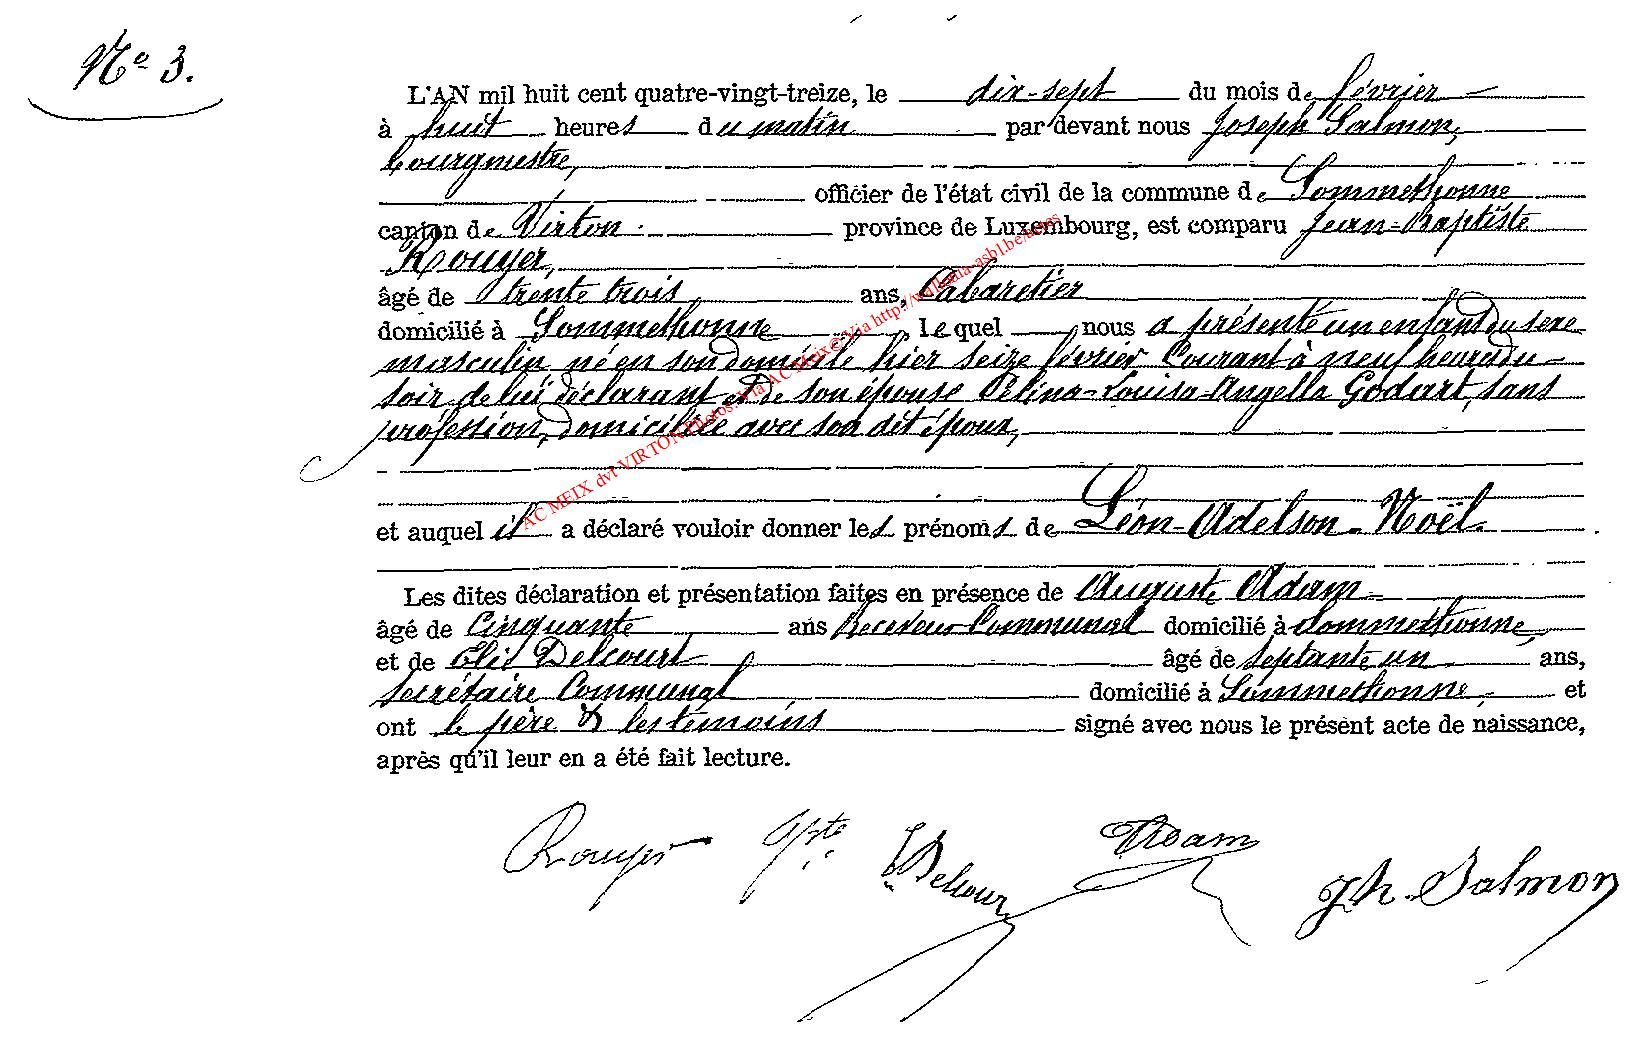 Nº 3.
L'AN mil huit cent quatre-vingt-treize, le dix-sept du mois de février
à huit heures du matin par devant nous Joseph Salmon,
bourgmestre,
officier de l'état civil de la commune de Sommethonne
canton de Virton. province de Luxembourg, est comparu Jean-Baptiste
Rouyer,
âgé de trente trois ans, Cabaretier
domicilié à Sommethonne. Lequel nous a présenté un enfant du sexe
masculin, né en son domicile hier seize février Courant à neuf heures du
soir de lui déclarant et de son épouse Célina-Louisa-Angella Godart, sans
profession, domiciliée avec son dit époux,
et auquel il a déclaré vouloir donner les prénoms de Léon-Adelson-Noël.
Les dites déclaration et présentation faites en présence de Auguste Adam
âgé de Cinquante ans Receveur Communal domicilié à Sommethonne,
et de Elie Delcourt âgé de septante un ans,
secrétaire Communal domicilié à Sommethonne, et
ont le père & les témoins signé avec nous le présent acte de naissance,
après qu'il leur en a été fait lecture.
Rouyer Adam
Jh. Salmon
AC MEIX dvt VIRTON Photos: Via AC Meix © Via http://williama-asbl.be/actes